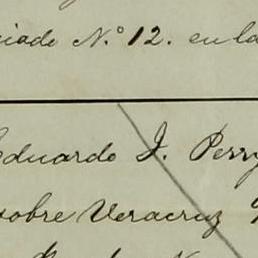 iade N.º 12. en la
Eduardo J. Perry
sobre Veracruz